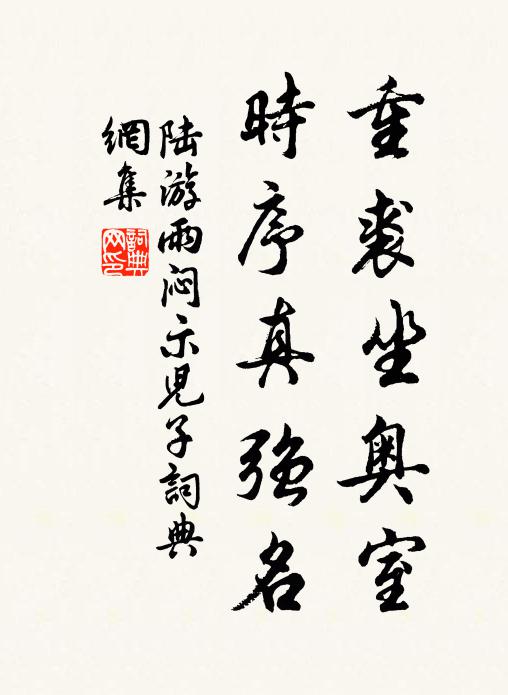 重裘坐奥室
時序真強名
陆游雨闷示兒子詞典
網集
詞典
网印